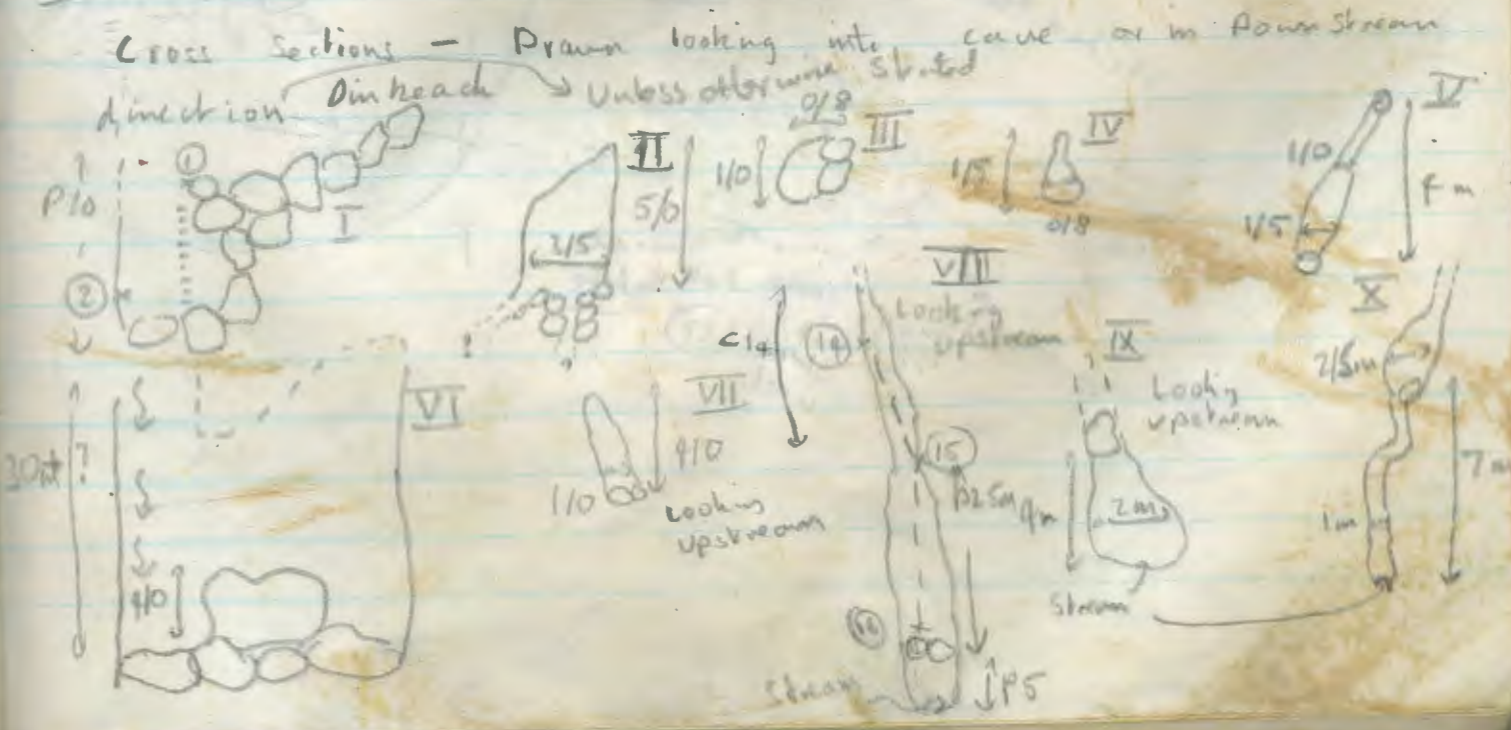 Cross Sections - Drawn looking into cave or in Downstream
direction Unless otherwise Stated
P10
①
②
I
II
5/0
3/5
0/8
1/0
III
IV
1/5
0/8
V
1/0
1/5
VI
30m ?
4/0
VII
4/0
1/0
Looking
upstream
VIII
Looking
upstream
C14
⑭
⑮
P25m
⑯
Stream
P5
IX
Looking
upstream
9m
2m
Stream
X
2/5m
7m
1m